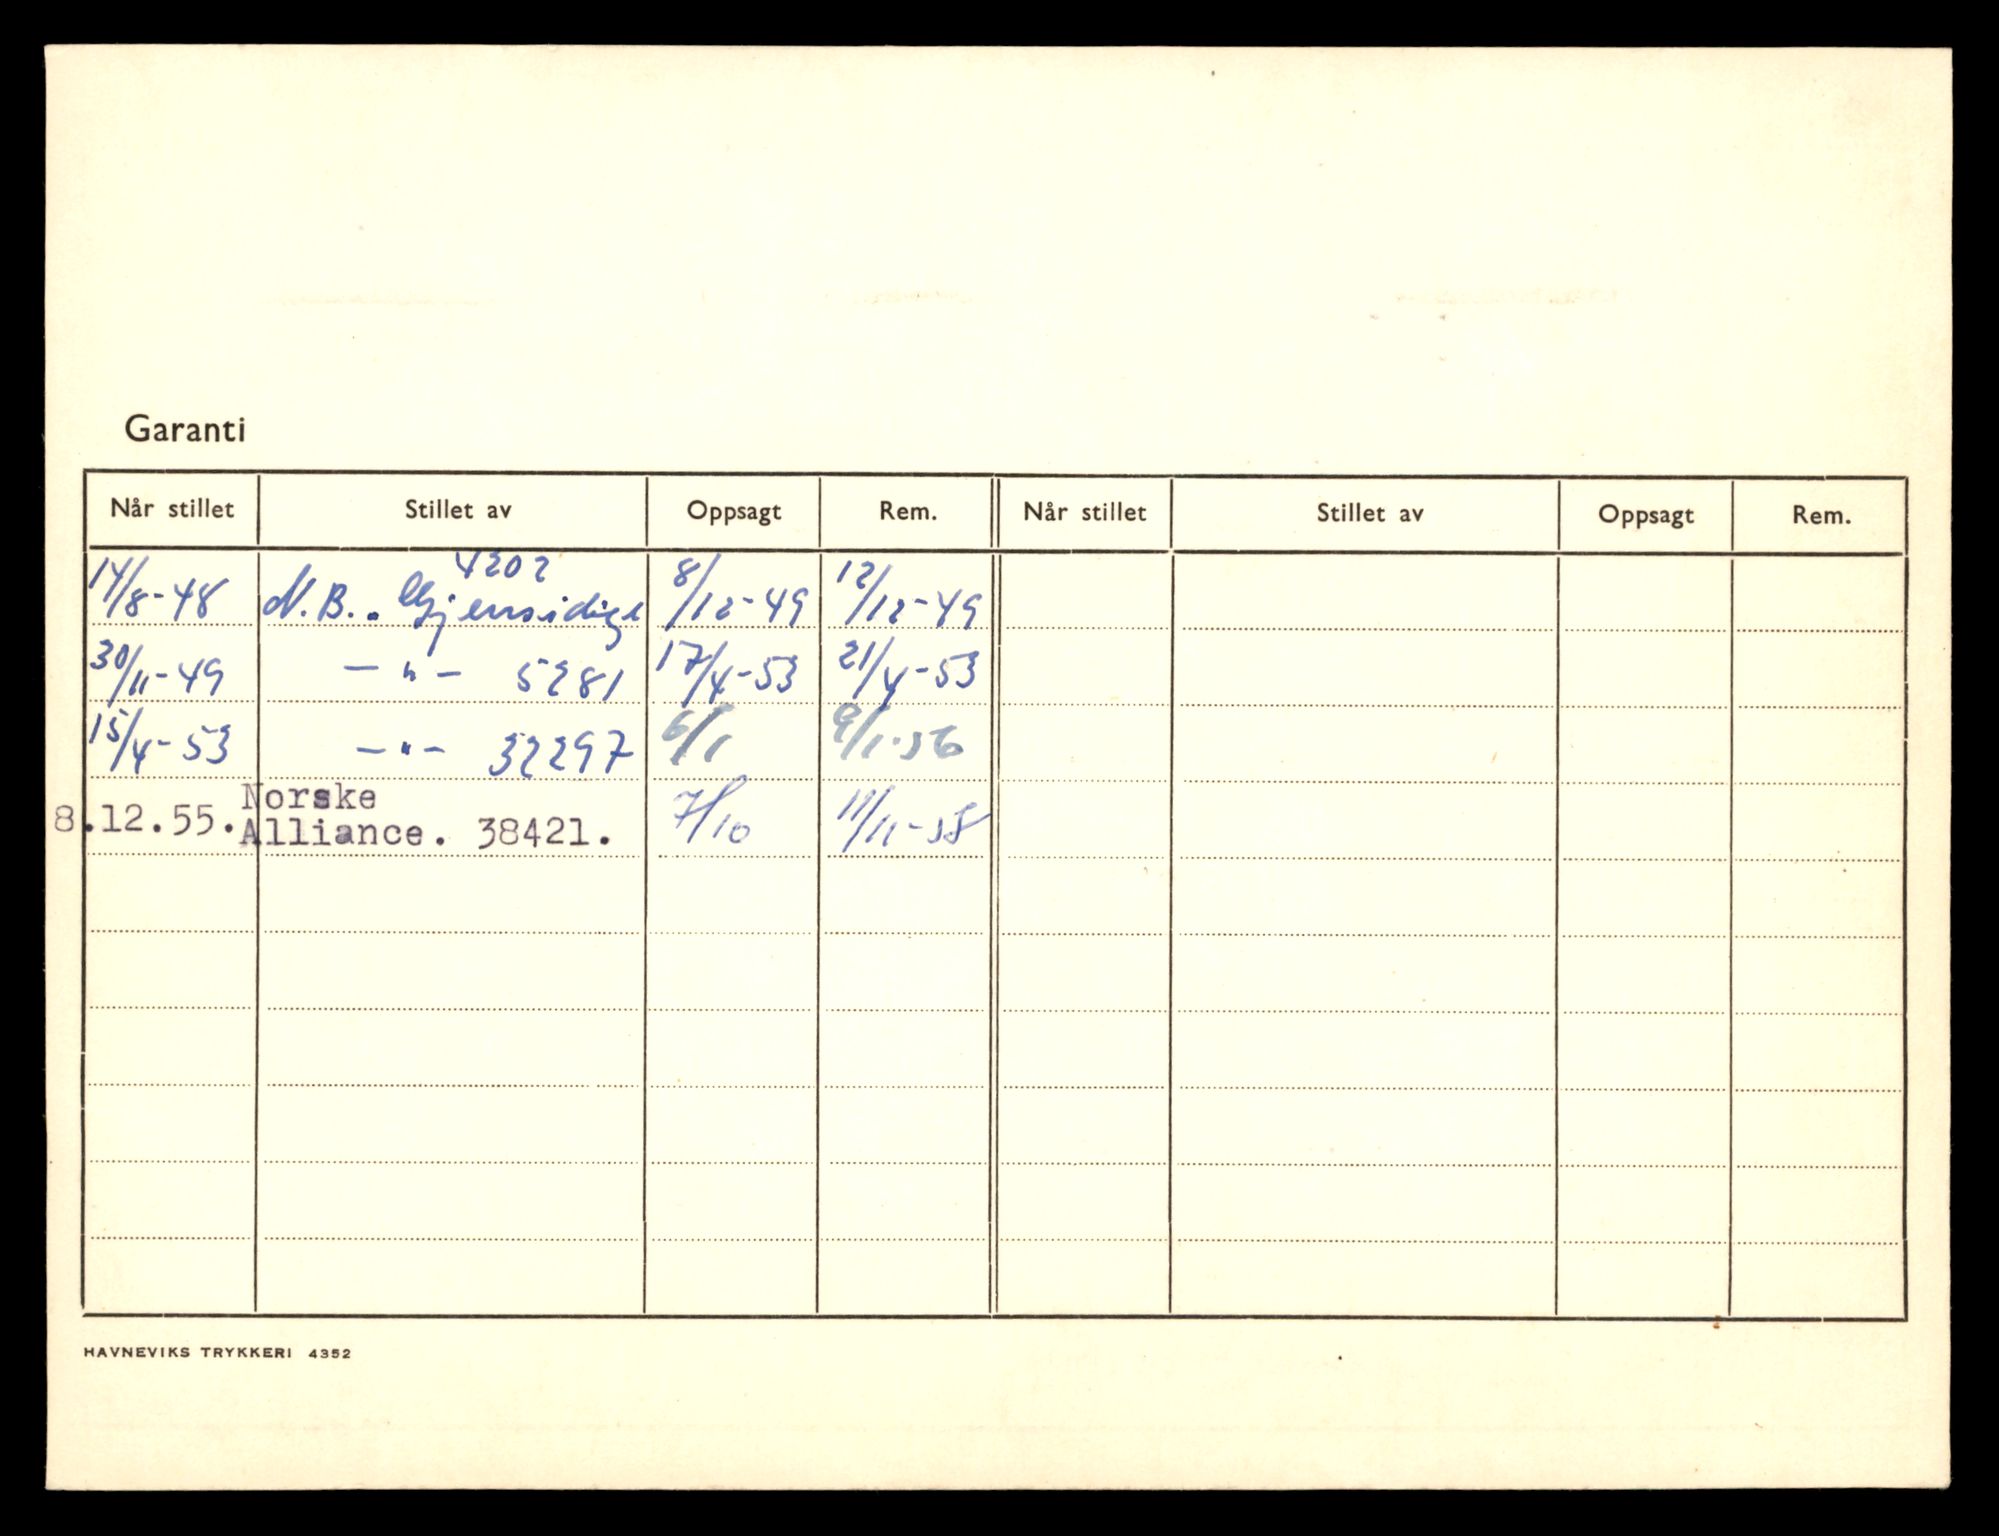 Garanti
Når stillet Stillet av Oppsagt Rem. Når stillet Stillet av Oppsagt Rem.
4202
14/8-48 N.B.. Gjensidige 8/12-49 12/12-49
30/11-49 -"- 5281 17/4-53 21/4-53
15/4-53 -"- 32297 6/1 9/1-56
Norske
8.12.55. Alliance. 38421. 7/10 11/11-58
HAVNEVIKS TRYKKERI 4352